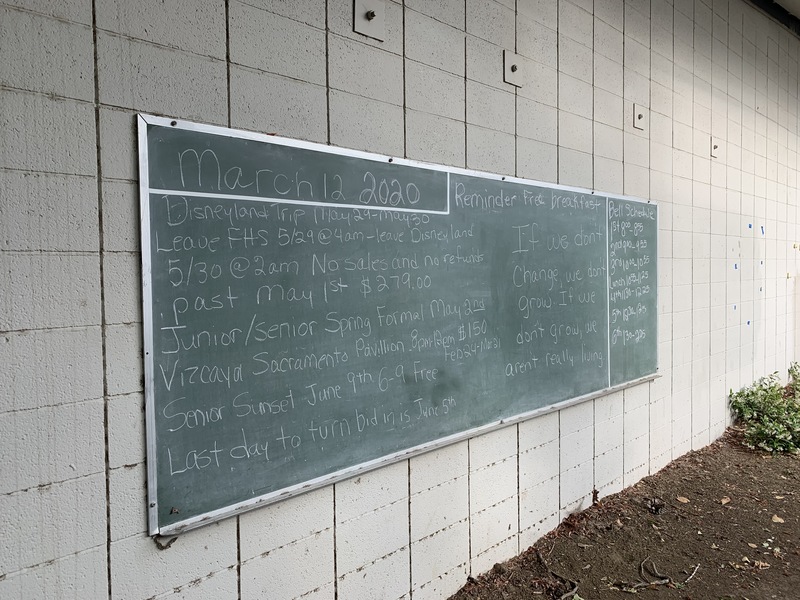 March 12 2020
Disneyland Trip May 29-May 30
Leave FHS 5/29 @ 4am - leave Disneyland
5/30 @ 2am No sales and no refunds
past May 1st $279.00
Junior/senior Spring Formal May 2nd
Vizcaya Sacramento Pavillion 8pm-12am $150
Feb 24-Mar 31
Senior Sunset June 9th 6-9 Free
Last day to turn bid in is June 5th
Reminder Free breakfast
If we don't
Change, we dont
grow. If we
don't grow, we
arent really living
Bell Schedule
1st 8:00-8:55
2nd 9:00-9:55
3rd 10:00-10:55
Lunch 10:55-11:25
4th 11:30-12:25
5th 12:30-1:25
6th 1:30-2:25